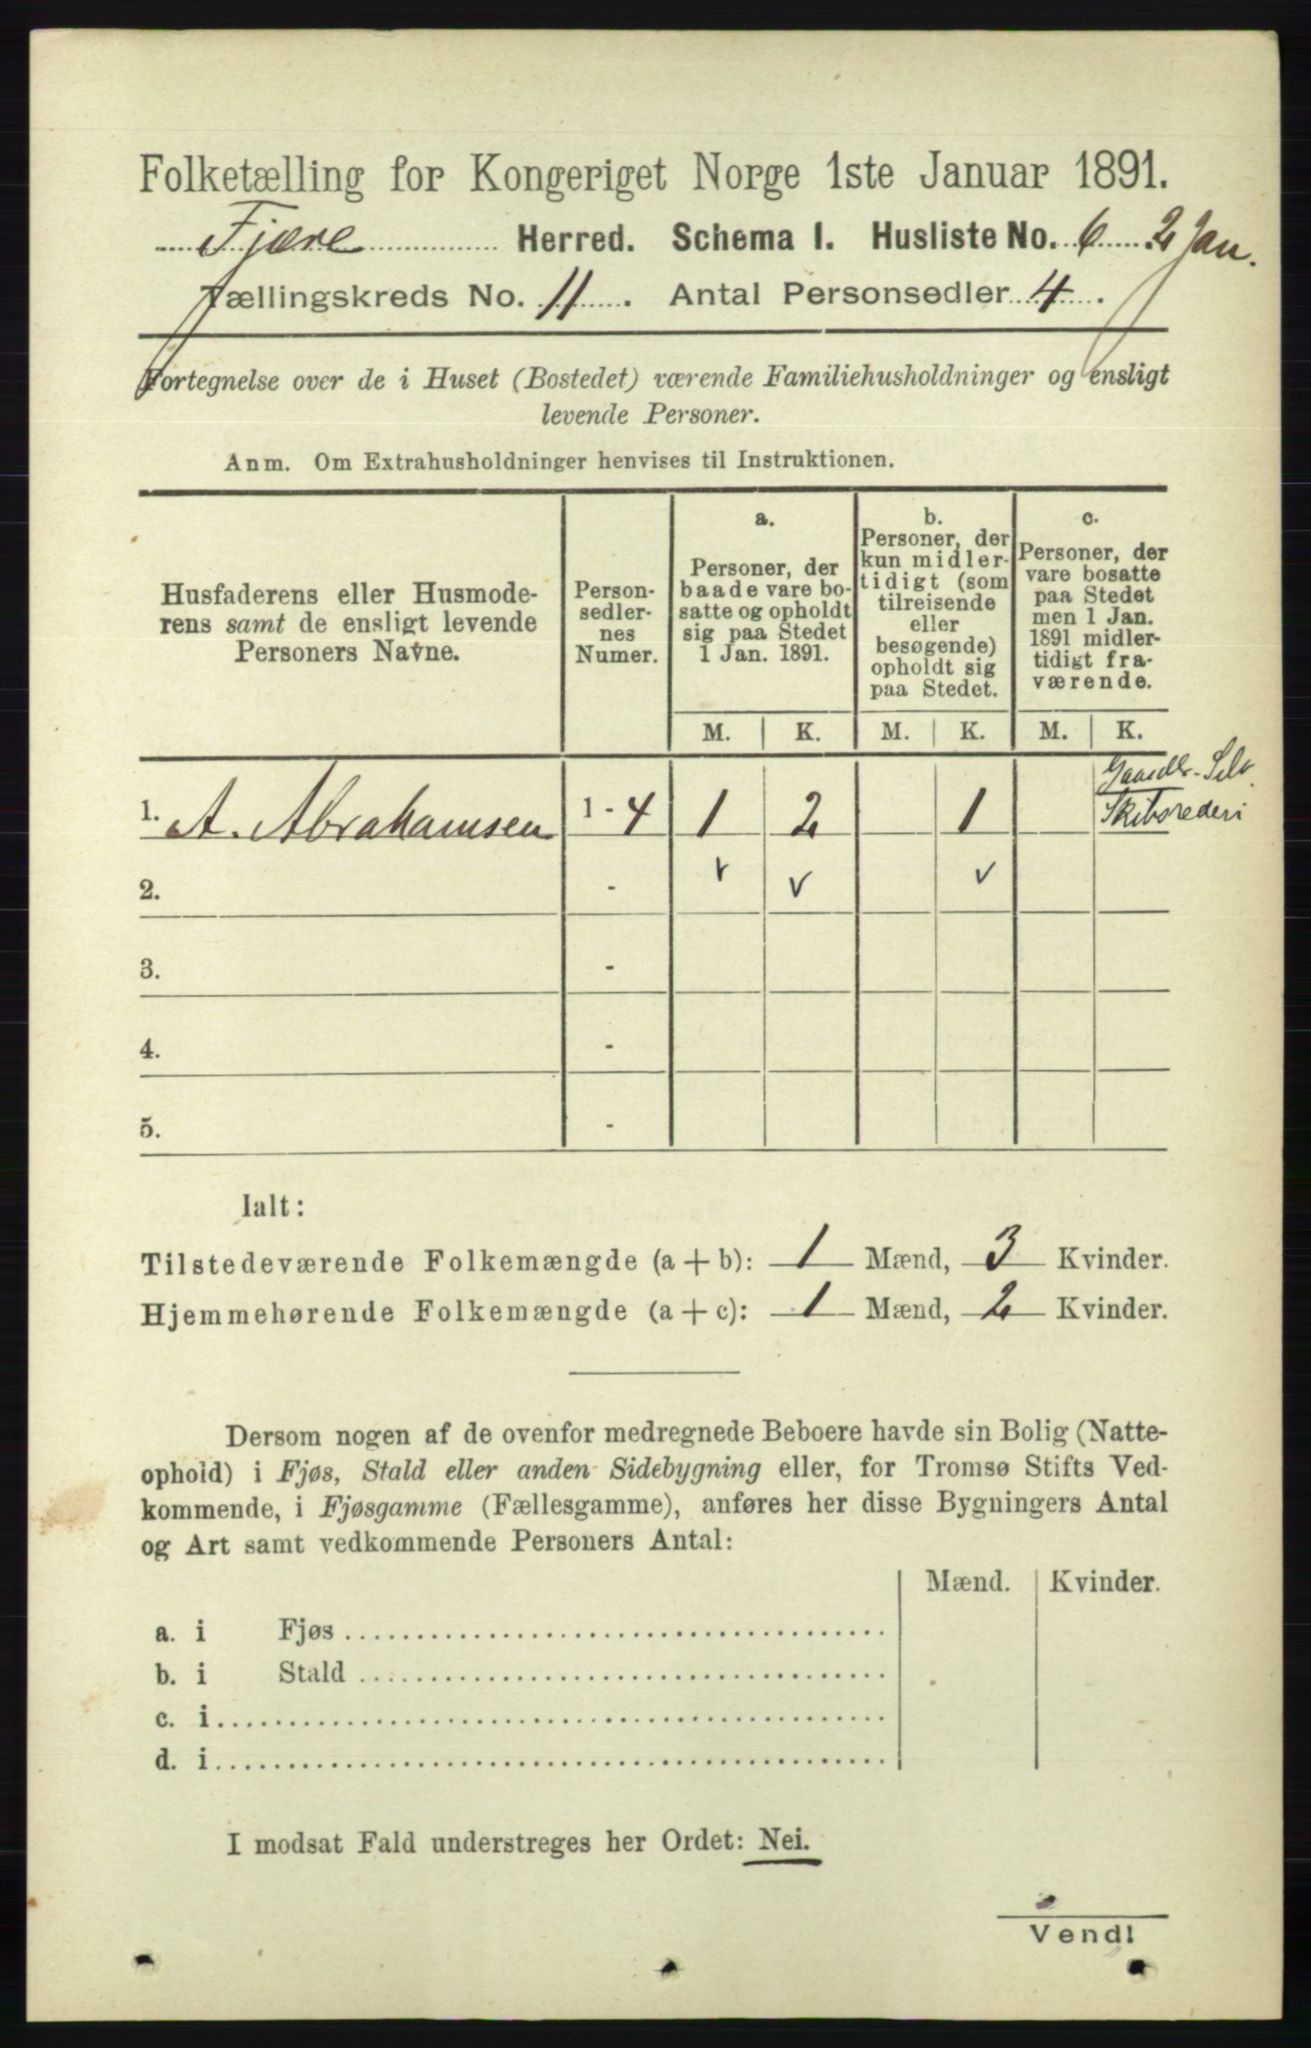 Folketælling for Kongeriget Norge 1ste Januar 1891.
Fjære Herred. Schema I. Husliste No. 6 2 Jan.
Tællingskreds No. 11. Antal Personsedler 4.
Fortegnelse over de i Huset (Bostedet) værende Familiehusholdninger og ensligt
levende Personer.
Anm. Om Extrahusholdninger henvises til Instruktionen.
Husfaderens eller Husmode-
rens samt de ensligt levende
Personers Navne.
Person-
sedler-
nes
Numer.
a.
Personer, der
baade vare bo-
satte og opholdt
sig paa Stedet
1 Jan. 1891.
b.
Personer, der
kun midler-
tidigt (som
tilreisende
eller
besøgende)
opholdt sig
paa Stedet.
c.
Personer, der
vare bosatte
paa Stedet
men 1 Jan.
1891 midler-
tidigt fra-
værende.
M. K. M. K. M. K.
Gaardbr. - Selv
1. A. Abrahamsen 1 - 4 1 2 1 Skibsrederi
2. -
3. -
4. -
5. -
Ialt:
Tilstedeværende Folkemængde (a + b): 1 Mænd, 3 Kvinder.
Hjemmehørende Folkemængde (a + c): 1 Mænd, 2 Kvinder.
Dersom nogen af de ovenfor medregnede Beboere havde sin Bolig (Natte-
ophold) i Fjøs, Stald eller anden Sidebygning eller, for Tromsø Stifts Ved-
kommende, i Fjøsgamme (Fællesgamme), anføres her disse Bygningers Antal
og Art samt vedkommende Personers Antal:
Mænd. Kvinder.
a. i Fjøs
b. i Stald
c. i
d. i
I modsat Fald understreges her Ordet: Nei.
Vend!